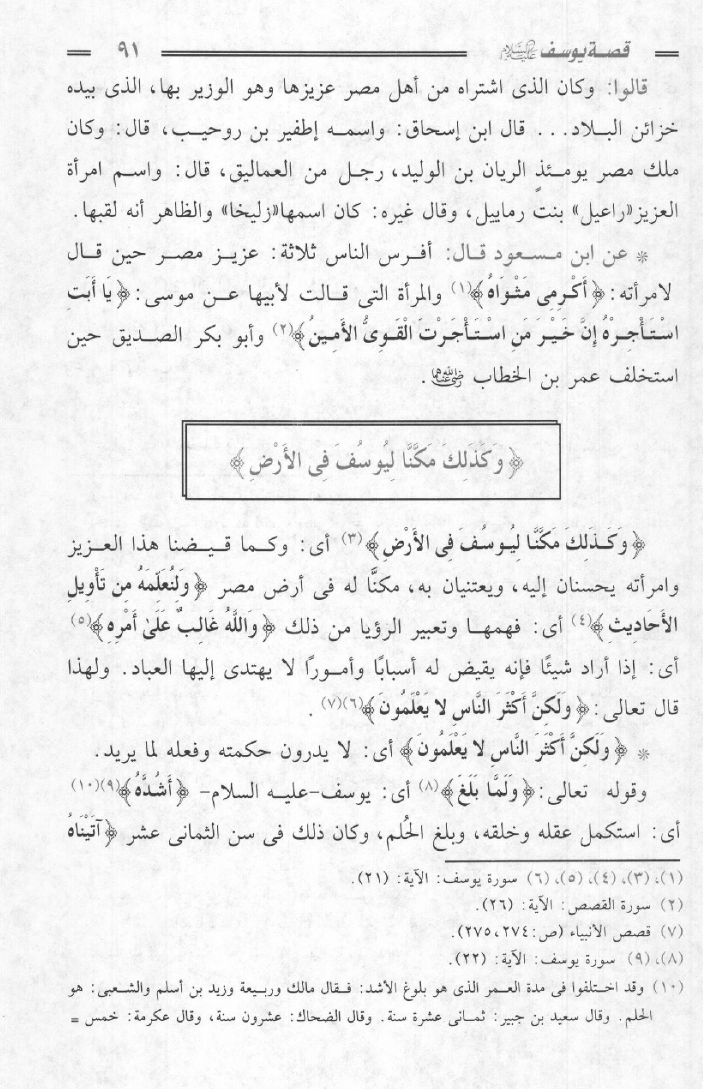 قصة يوسف عليه السلام ٩١
قالوا: وكان الذى اشتراه من أهل مصر عزيزها وهو الوزير بها، الذى بيده
خزائن البلاد... قال ابن إسحاق: واسمه إطفير بن روحيب، قال: وكان
ملك مصر يومئذٍ الريان بن الوليد، رجل من العماليق، قال: واسم امرأة
العزيز«راعيل» بنت رماييل، وقال غيره: كان اسمها«زليخا» والظاهر أنه لقبها.
* عن ابن مسعود قال: أفرس الناس ثلاثة: عزيز مصر حين قال
لامرأته: ﴿أَكْرِمِى مَثْوَاهُ﴾(١) والمرأة التى قالت لأبيها عن موسى: ﴿يَا أَبَتِ
اسْتَأْجِرْهُ إِنَّ خَيْرَ مَنِ اسْتَأْجَرْتَ الْقَوِىُّ الأَمِينُ﴾(٢) وأبو بكر الصديق حين
استخلف عمر بن الخطاب رضي الله عنهما.
﴿وَكَذَلِكَ مَكَّنَّا لِيُوسُفَ فِى الأَرْضِ﴾
﴿وَكَذَلِكَ مَكَّنَّا لِيُوسُفَ فِى الأَرْضِ﴾(٣) أى: وكما قيضنا هذا العزيز
وامرأته يحسنان إليه، ويعتنيان به، مكنَّا له فى أرض مصر ﴿وَلِنُعَلِّمَهُ مِن تَأْوِيلِ
الأَحَادِيثِ﴾(٤) أى: فهمها وتعبير الرؤيا من ذلك ﴿وَاللَّهُ غَالِبٌ عَلَىٰ أَمْرِهِ﴾(٥)
أى: إذا أراد شيئًا فإنه يقيض له أسبابًا وأمورًا لا يهتدى إليها العباد. ولهذا
قال تعالى: ﴿وَلَكِنَّ أَكْثَرَ النَّاسِ لا يَعْلَمُونَ﴾(٦)(٧).
* ﴿وَلَكِنَّ أَكْثَرَ النَّاسِ لا يَعْلَمُونَ﴾ أى: لا يدرون حكمته وفعله لما يريد.
وقوله تعالى: ﴿وَلَمَّا بَلَغَ﴾(٨) أى: يوسف-عليه السلام- ﴿أَشُدَّهُ﴾(٩)(١٠)
أى: استكمل عقله وخلقه، وبلغ الحُلم، وكان ذلك فى سن الثمانى عشر ﴿آتَيْنَاهُ
(١)، (٣)، (٤)، (٥)، (٦) سورة يوسف: الآية: (٢١).
(٢) سورة القصص: الآية: (٢٦).
(٧) قصص الأنبياء (ص:٢٧٤، ٢٧٥).
(٨)، (٩) سورة يوسف: الآية: (٢٢).
(١٠) وقد اختلفوا فى مدة العمر الذى هو بلوغ الأشد: فقال مالك وربيعة وزيد بن أسلم والشعبى: هو
الحلم. وقال سعيد بن جبير: ثمانى عشرة سنة. وقال الضحاك: عشرون سنة، وقال عكرمة: خمس =